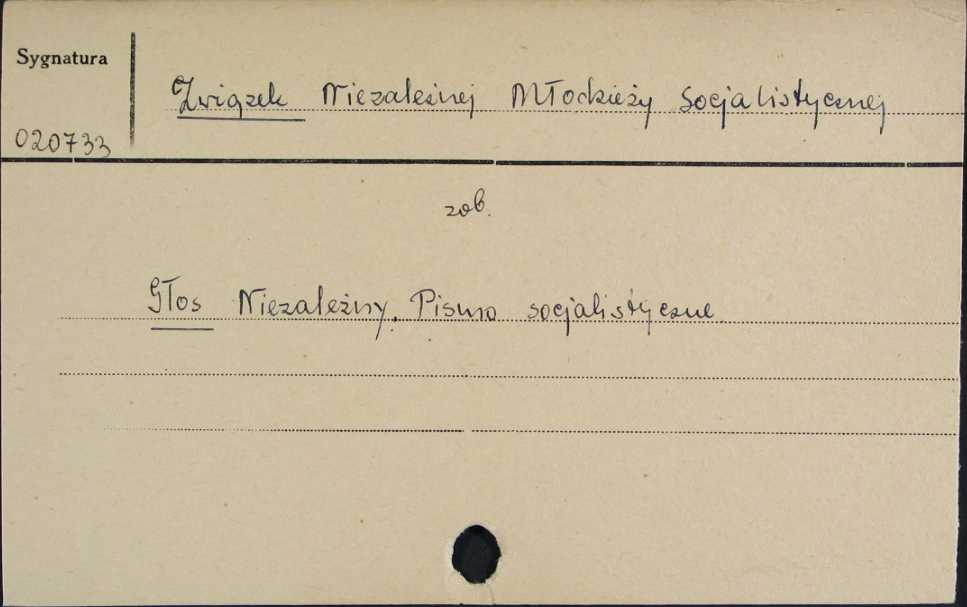 Sygnatura
Związek Niezależnej Młodzieży Socjalistycznej
020733
zob.
Głos Niezależny. Pismo socjalistyczne